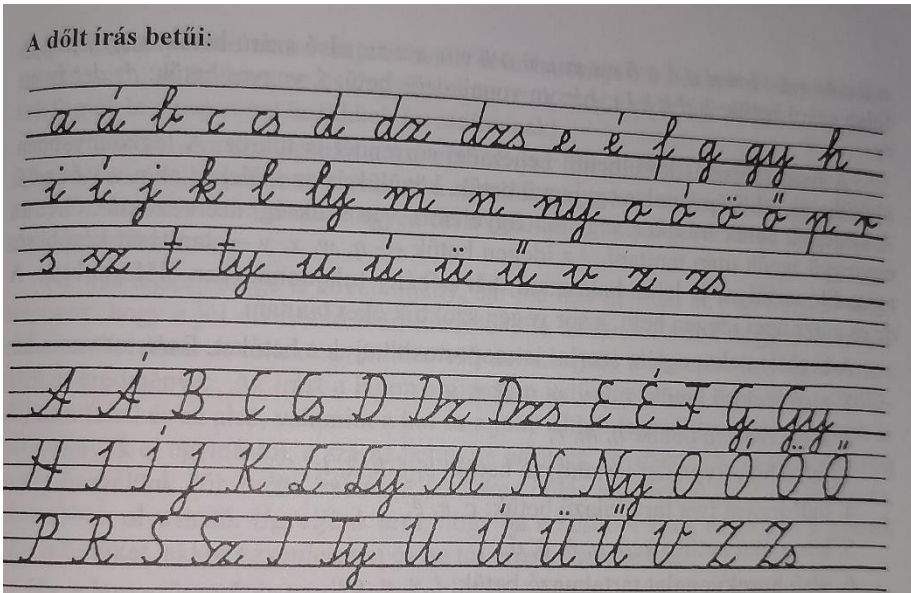 A dőlt írás betűi:
a á b c cs d dz dzs e é f g gy h
i í j k l ly m n ny o ó ö ő p r
s sz t ty u ú ü ű v z zs
A Á B C Cs D Dz Dzs E É F G Gy
H I Í J K L Ly M N Ny O Ó Ö Ő
P R S Sz T Ty U Ú Ü Ű V Z Zs